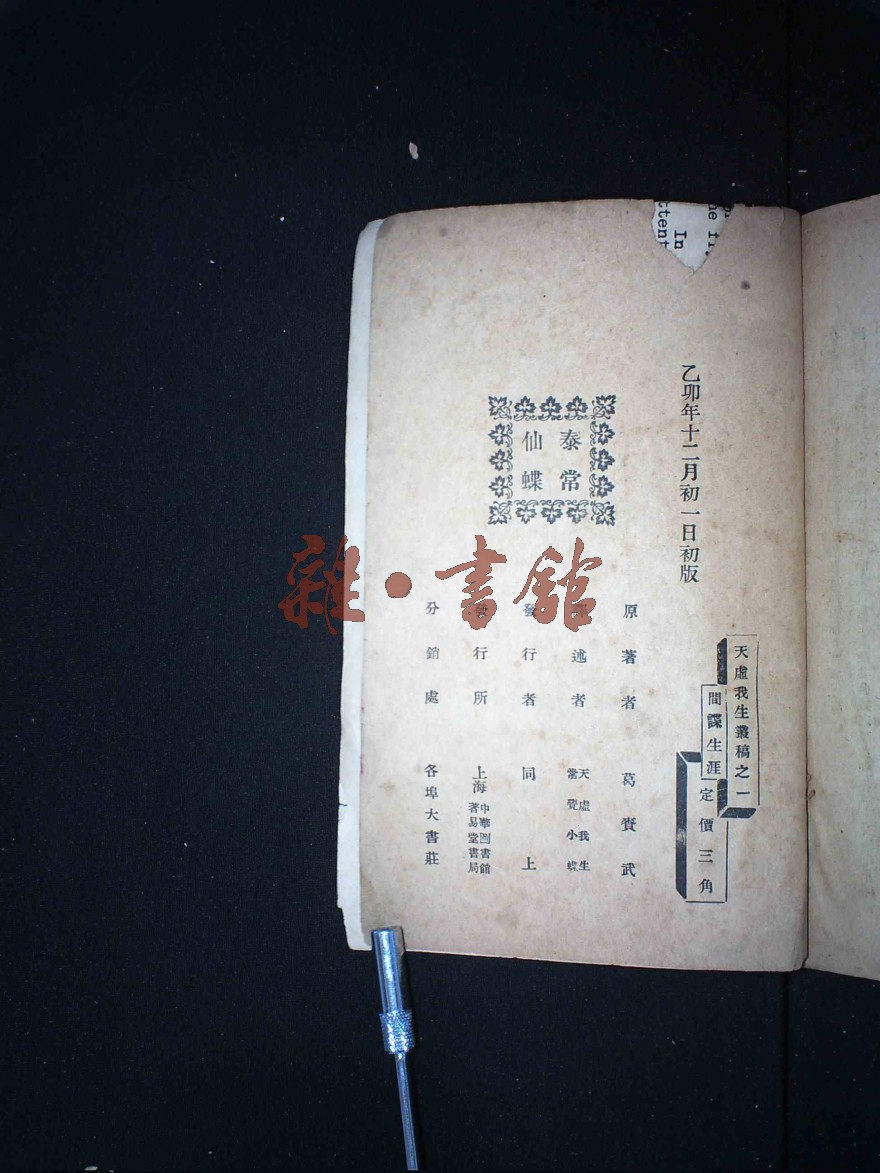 乙卯年十二月初一日初版
天虛我生叢稿之一
間諜生涯
定價三角
泰常
仙蝶
原著者 葛賚武
述者 天虛我生
常覺小蝶
發行者 同上
發行所 上海 中華圖書館
著易堂書局
分銷處 各埠大書莊
雜·書館
In
ttent